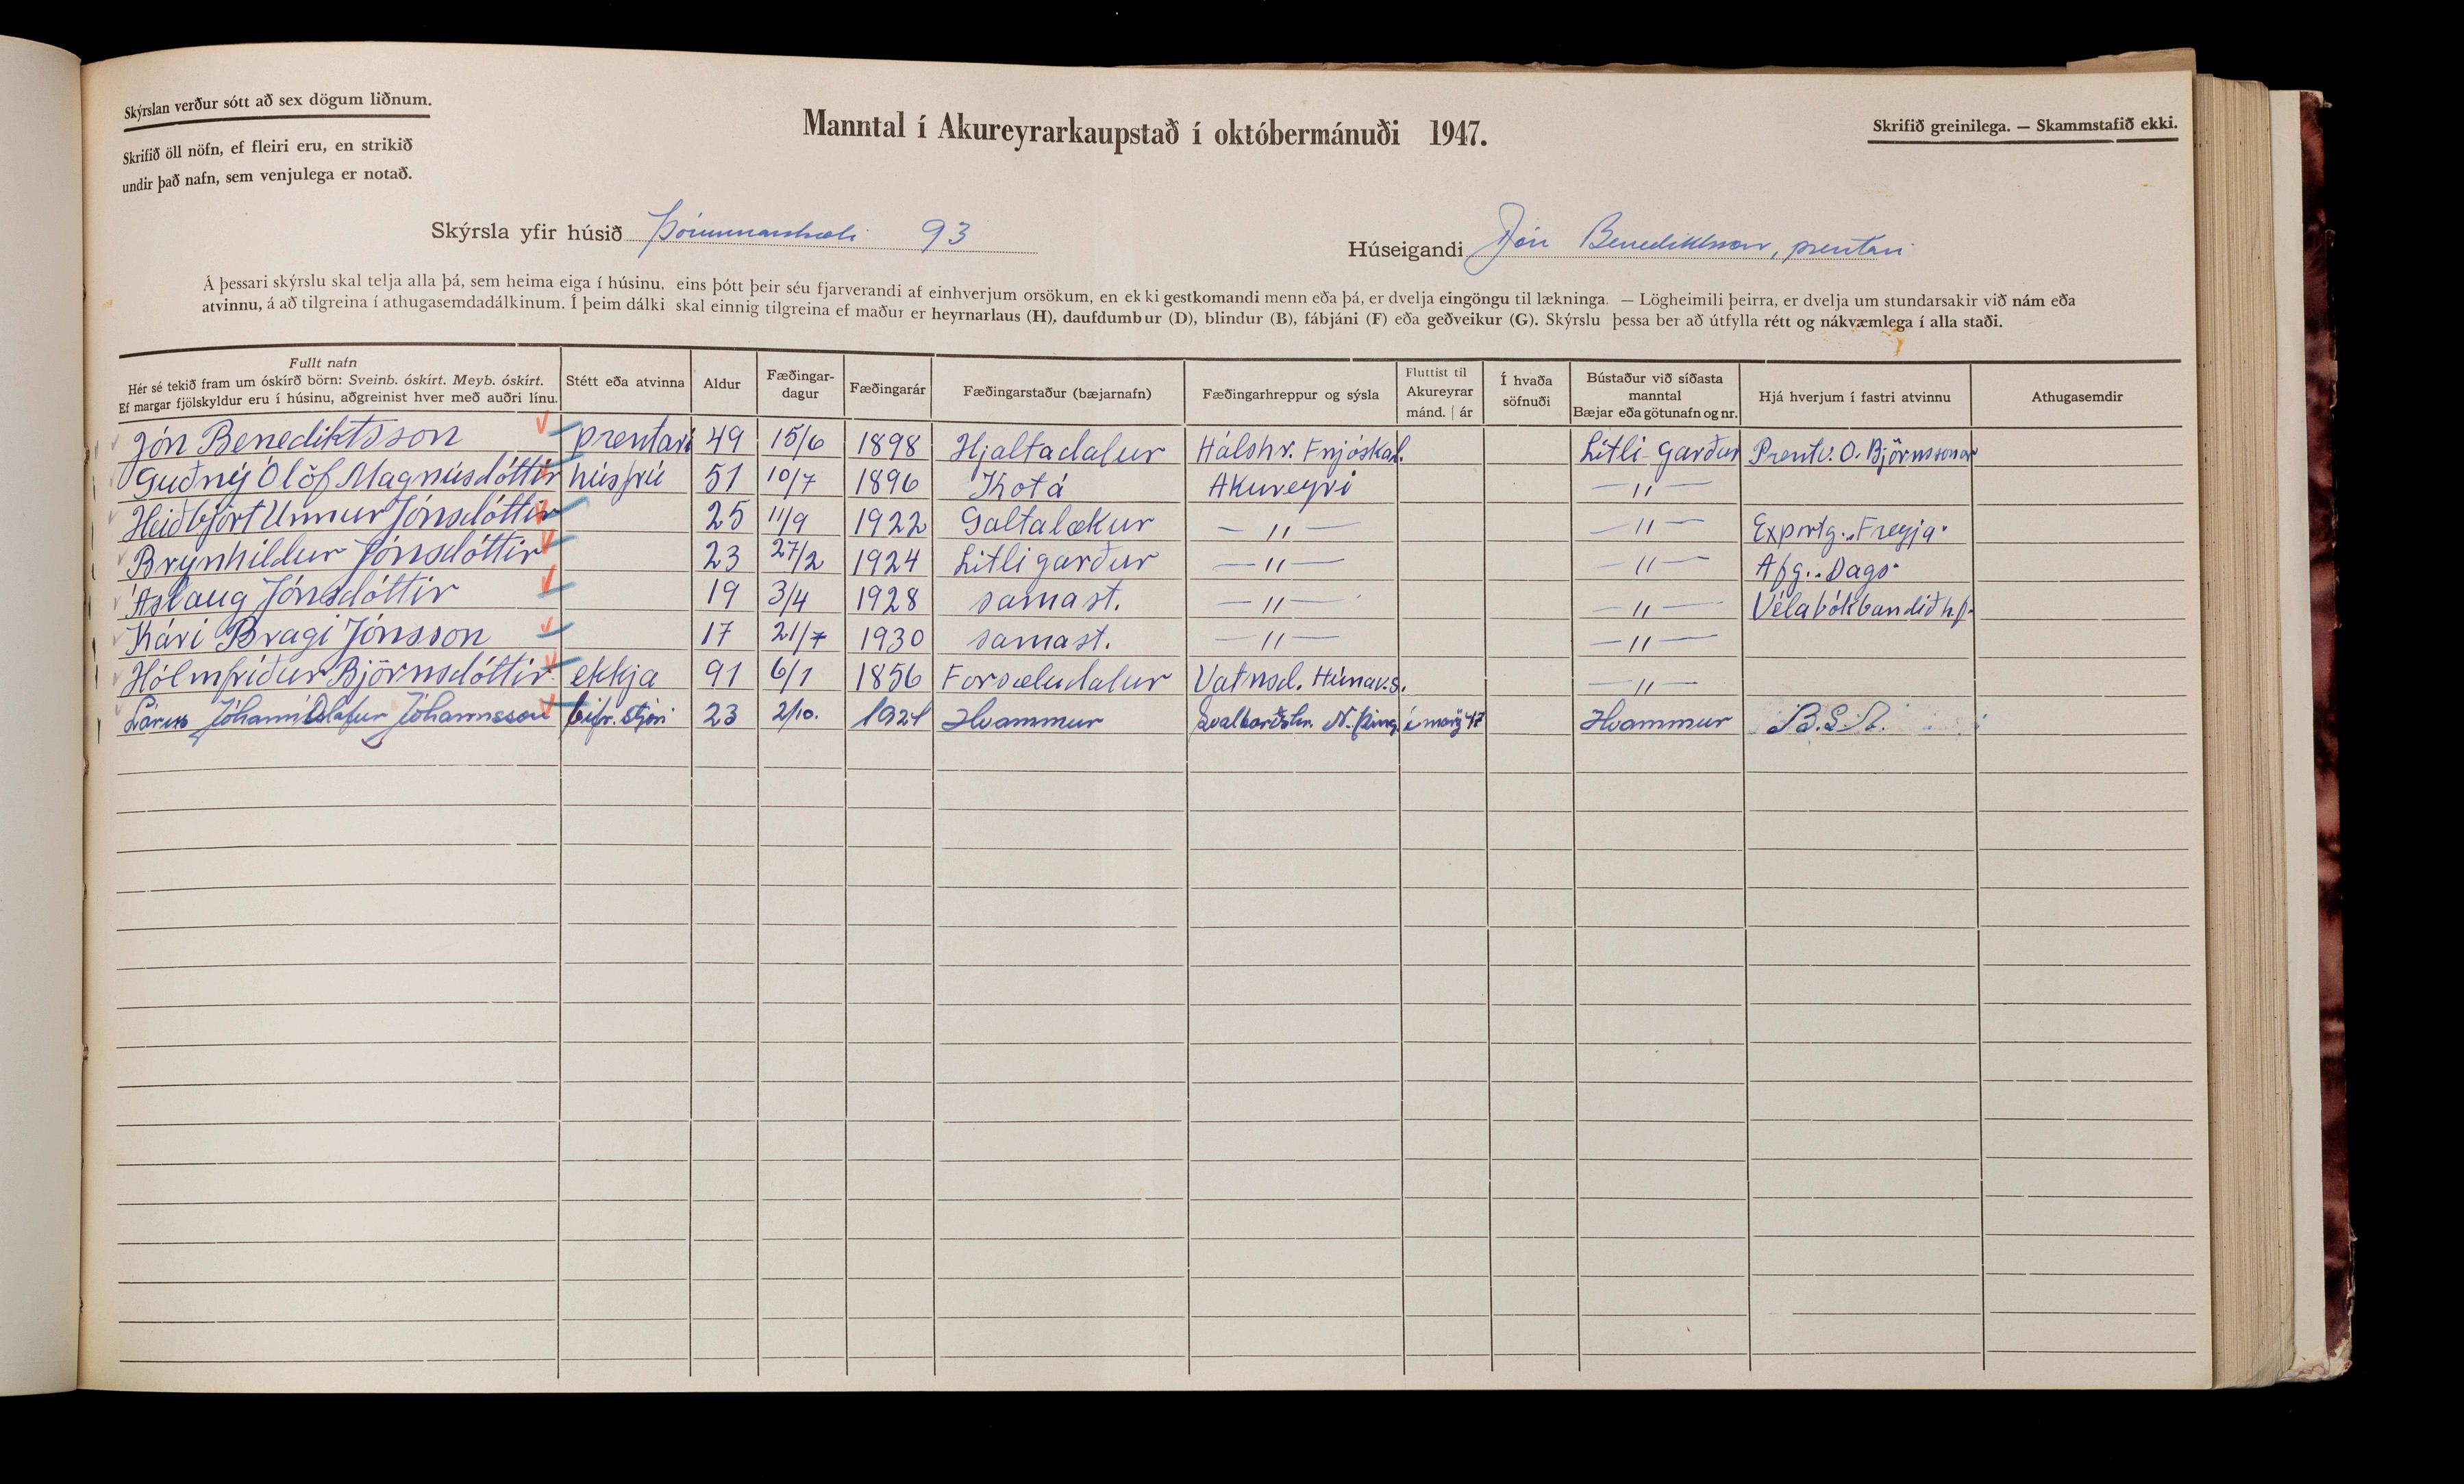 Skýrslan verður sótt að sex dögum liðnum.
Skrifið öll nöfn, ef fleiri eru, en strikið
undir það nafn, sem venjulega er notað.
Manntal í Akureyrarkaupstað í októbermánuði 1947.
Skrifið greinilega. — Skammstafið ekki.
Skýrsla yfir húsið Þórunnarstræti 93
Húseigandi Jón Benediktsson, prentari
Á þessari skýrslu skal telja alla þá, sem heima eiga í húsinu, eins þótt þeir séu fjarverandi af einhverjum orsökum, en ekki gestkomandi menn eða þá, er dvelja eingöngu til lækninga. — Lögheimili þeirra, er dvelja um stundarsakir við nám eða
atvinnu, á að tilgreina í athugasemdadálkinum. Í þeim dálki skal einnig tilgreina ef maður er heyrnarlaus (H), daufdumbur (D), blindur (B), fábjáni (F) eða geðveikur (G). Skýrslu þessa ber að útfylla rétt og nákvæmlega í alla staði.
Fullt nafn Hér sé tekið fram um óskírð börn: Sveinb. óskírt. Meyb. óskírt. Ef margar fjölskyldur eru í húsinu, aðgreinist hver með auðri línu. Stétt eða atvinna Aldur Fæðingar-dagur Fæðingarár Fæðingarstaður (bæjarnafn) Fæðingarhreppur og sýsla Fluttist til Akureyrar mánd. | ár Í hvaða söfnuði Bústaður við síðasta manntal Bæjar eða götunafn og nr. Hjá hverjum í fastri atvinnu Athugasemdir
Jón Benediktsson prentari 49 15/6 1898 Hjaltadalur Hálshr. Fnjóskad. Litli-Garður Prentv. O. Björnssonar
Guðný Ólöf Magnúsdóttir húsfrú 51 10/7 1896 Kotá Akureyri — " —
Heiðbjört Unnur Jónsdóttir 25 11/9 1922 Galtalækur — " — — " — Exportg. „Freyja"
Brynhildur Jónsdóttir 23 27/2 1924 Litligarður — " — — " — Afg. „Dags"
Áslaug Jónsdóttir 19 3/4 1928 samast. — " — — " — Vélabókbandið h/f.
Kári Bragi Jónsson 17 21/7 1930 samast. — " — — " —
Hólmfríður Björnsdóttir ekkja 91 6/1 1856 Forsæludalur Vatnsd. Húnav.s. — " —
Lárus Jóhann Ólafur Jóhannsson bifr.stjóri 23 2/10. 1924 Hvammur Svalbarðshr. N.Þing. í marz 47 Hvammur B.S.A.